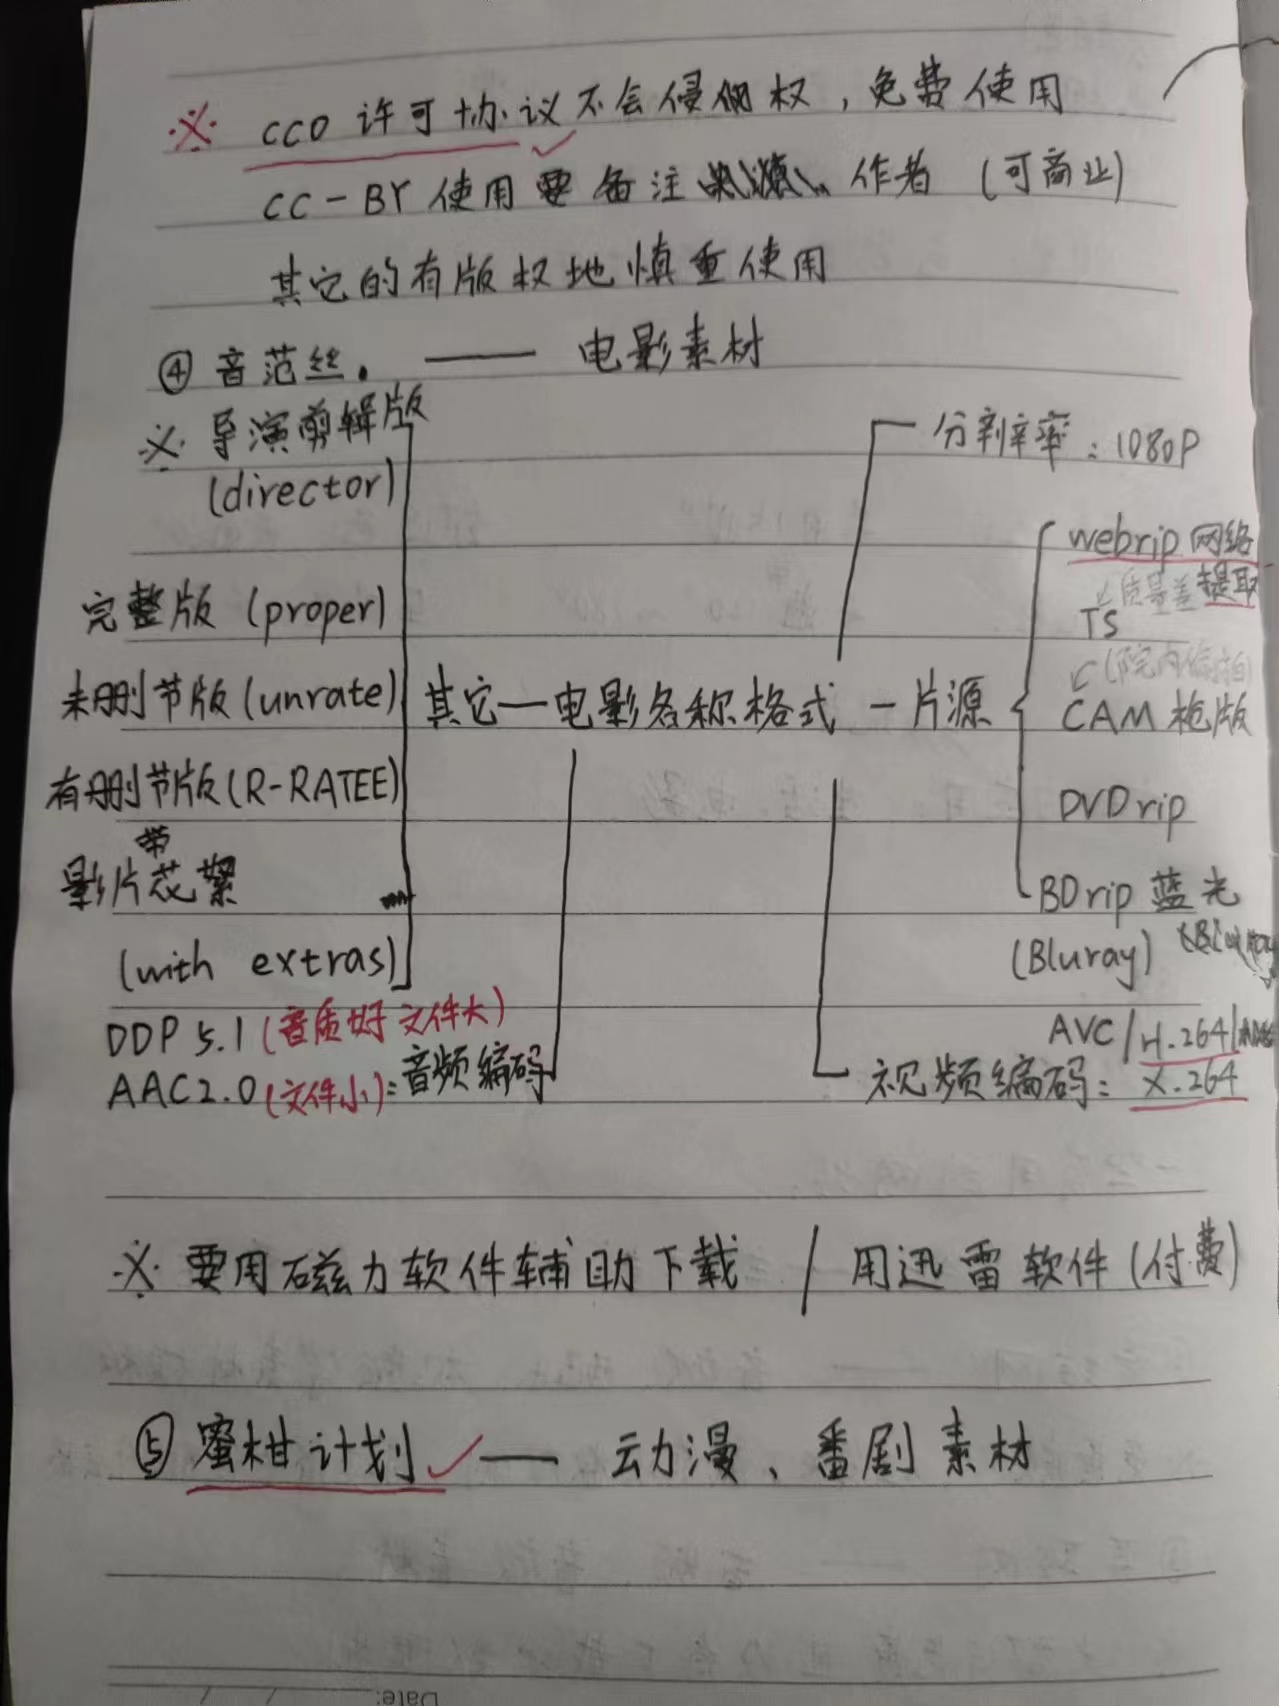 ※ CC0 许可协议不会侵权，免费使用
CC-BY 使用要备注 作者 (可商业)
其它的有版权地慎重使用
④ 音范丝. —— 电影素材
※ 导演剪辑版
(director)
分辨率：1080P
webrip 网络
提取
质量差
TS
(院内偷拍)
完整版 (proper)
未删节版 (unrate)
其它—电影名称格式 — 片源
CAM 枪版
有删节版 (R-RATEE)
DVDrip
带
影片花絮
BDrip 蓝光
(with extras)
(Bluray)
DDP 5.1 (音质好 文件大)
AVC/H.264/
AAC2.0 (文件小)：音频编码
视频编码：X.264
※ 要用磁力软件辅助下载 / 用迅雷软件 (付费)
⑤ 蜜柑计划 —— 动漫、番剧素材
Date: